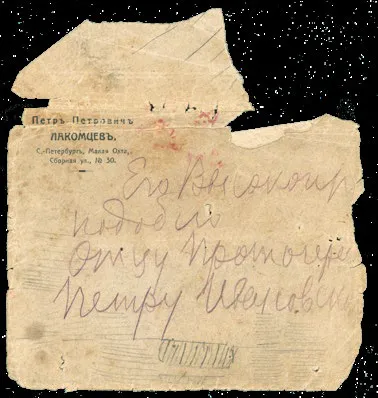 Петръ Петровичъ
ЛАКОМЦЕВЪ.
С.-Петербургъ, Малая Охта,
Сборная ул., № 30.
Его Высокопр
подобію
Отцу Протоіере
Петру Ивановск